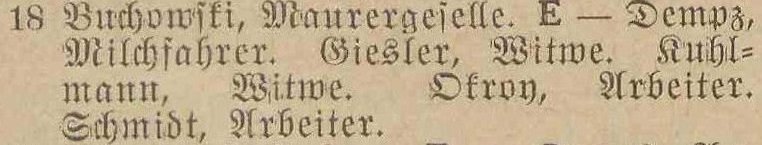 18 Buchowski, Maurergeselle. E — Dempz,
Milchfahrer. Giesler, Witwe. Kuhl=
mann, Witwe. Okroy, Arbeiter.
Schmidt, Arbeiter.